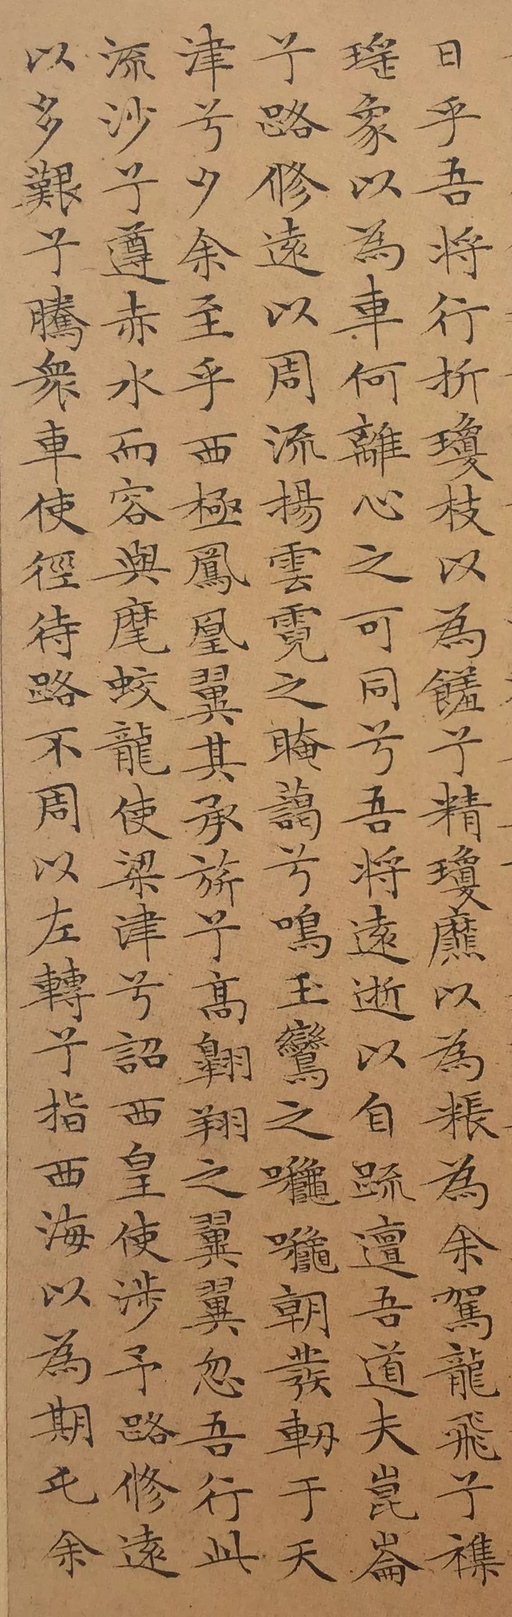 日乎吾将行折瓊枝以為饈兮精瓊爢以為粻為余駕龍飛兮襍
瑤象以為車何離心之可同兮吾将遠逝以自疏邅吾道夫崑崙
兮路修遠以周流揚雲霓之晻藹兮鳴玉鸞之朝發軔于天
津兮夕余至乎西極鳳凰翼其承旂兮高翱翔之翼翼忽吾行此
流沙兮遵赤水而容與麾蛟龍使梁津兮詔西皇使涉予路修遠
以多艱兮騰衆車使徑待路不周以左轉兮指西海以為期屯余